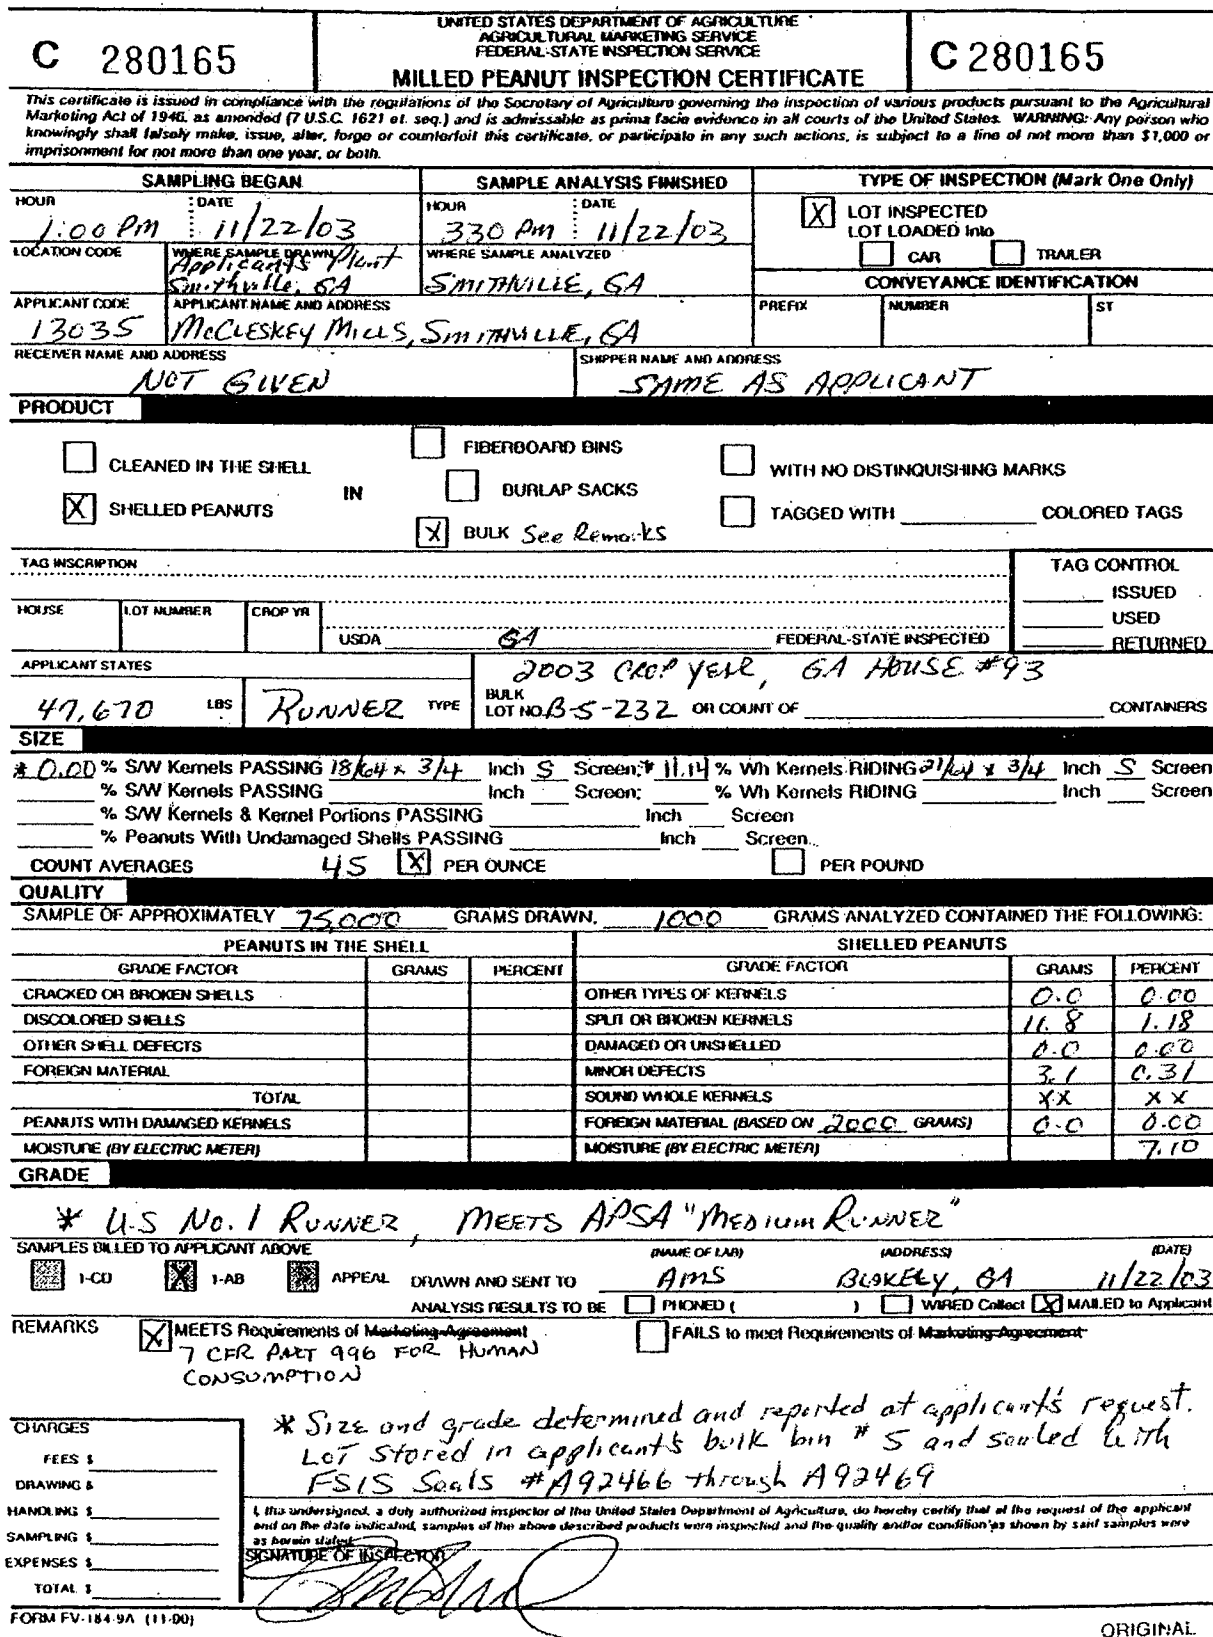 C 280165
UNITED STATES DEPARTMENT OF AGRICULTURE
AGRICULTURAL MARKETING SERVICE
FEDERAL-STATE INSPECTION SERVICE
MILLED PEANUT INSPECTION CERTIFICATE
C 280165
This certificate is issued in compliance with the regulations of the Secretary of Agriculture governing the inspection of various products pursuant to the Agricultural
Marketing Act of 1946, as amended (7 U.S.C. 1621 et. seq.) and is admissable as prima facie evidence in all courts of the United States. WARNING: Any person who
knowingly shall falsely make, issue, alter, forge or counterfoit this certificate, or participate in any such actions, is subject to a fine of not more than $1,000 or
imprisonment for not more than one year, or both.
SAMPLING BEGAN
SAMPLE ANALYSIS FINISHED
TYPE OF INSPECTION (Mark One Only)
HOUR DATE
1:00 PM 11/22/03
HOUR DATE
330 PM 11/22/03
X LOT INSPECTED
LOT LOADED Into
CAR TRAILER
LOCATION CODE
WHERE SAMPLE DRAWN
Applicants Plant
Smithville, GA
WHERE SAMPLE ANALYZED
SMITHVILLE, GA
CONVEYANCE IDENTIFICATION
PREFIX NUMBER ST
APPLICANT CODE
13035
APPLICANT NAME AND ADDRESS
McCLESKEY MILLS, SMITHVILLE, GA
RECEIVER NAME AND ADDRESS
NOT GIVEN
SHIPPER NAME AND ADDRESS
SAME AS APPLICANT
PRODUCT
CLEANED IN THE SHELL
X SHELLED PEANUTS
IN
FIBERBOARD BINS
BURLAP SACKS
X BULK See Remarks
WITH NO DISTINQUISHING MARKS
TAGGED WITH COLORED TAGS
TAG INSCRIPTION
TAG CONTROL
ISSUED
USED
RETURNED
HOUSE LOT NUMBER CROP YR
USDA GA FEDERAL-STATE INSPECTED
APPLICANT STATES
47,670 LBS RUNNER TYPE
2003 CROP YEAR, GA HOUSE #93
BULK
LOT NO. B-5-232 OR COUNT OF CONTAINERS
SIZE
* 0.00 % S/W Kernels PASSING 18/64 x 3/4 Inch S Screen; * 11.14 % Wh Kernels RIDING 21/64 x 3/4 Inch S Screen
% S/W Kernels PASSING Inch Screen; % Wh Kernels RIDING Inch Screen
% S/W Kernels & Kernel Portions PASSING Inch Screen
% Peanuts With Undamaged Shells PASSING Inch Screen.
COUNT AVERAGES 45 X PER OUNCE PER POUND
QUALITY
SAMPLE OF APPROXIMATELY 75,000 GRAMS DRAWN, 1000 GRAMS ANALYZED CONTAINED THE FOLLOWING:
PEANUTS IN THE SHELL SHELLED PEANUTS
GRADE FACTOR GRAMS PERCENT GRADE FACTOR GRAMS PERCENT
CRACKED OR BROKEN SHELLS OTHER TYPES OF KERNELS 0.0 0.00
DISCOLORED SHELLS SPLIT OR BROKEN KERNELS 11.8 1.18
OTHER SHELL DEFECTS DAMAGED OR UNSHELLED 0.0 0.00
FOREIGN MATERIAL MINOR DEFECTS 3.1 0.31
TOTAL SOUND WHOLE KERNELS XX XX
PEANUTS WITH DAMAGED KERNELS FOREIGN MATERIAL (BASED ON 2000 GRAMS) 0.0 0.00
MOISTURE (BY ELECTRIC METER) MOISTURE (BY ELECTRIC METER) 7.10
GRADE
* U.S No. 1 RUNNER, MEETS APSA "MEDIUM RUNNER"
SAMPLES BILLED TO APPLICANT ABOVE
(NAME OF LAB) (ADDRESS) (DATE)
1-CD X 1-AB APPEAL DRAWN AND SENT TO AMS BLAKELY, GA 11/22/03
ANALYSIS RESULTS TO BE PHONED ( ) WIRED Collect X MAILED to Applicant
REMARKS
X MEETS Requirements of Marketing Agreement
7 CFR PART 996 FOR HUMAN
CONSUMPTION
FAILS to meet Requirements of Marketing Agreement
* Size and grade determined and reported at applicant's request.
LOT Stored in applicant's bulk bin # 5 and sealed with
FSIS Seals #A92466 through A92469
CHARGES
FEES $
DRAWING $
HANDLING $
SAMPLING $
EXPENSES $
TOTAL $
I, the undersigned, a duly authorized inspector of the United States Department of Agriculture, do hereby certify that at the request of the applicant
and on the date indicated, samples of the above described products were inspected and the quality and/or condition as shown by said samples were
as herein stated.
SIGNATURE OF INSPECTOR
FORM FV-184-9A (11-00)
ORIGINAL